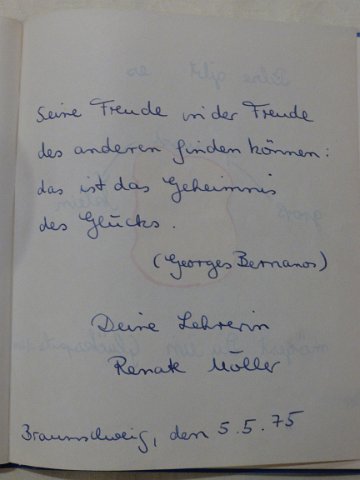 Seine Freude in der Freude
des anderen finden können:
das ist das Geheimnis
des Glücks.
(Georges Bernanos)
Deine Lehrerin
Renate Möller
Braunschweig, den 5.5.75